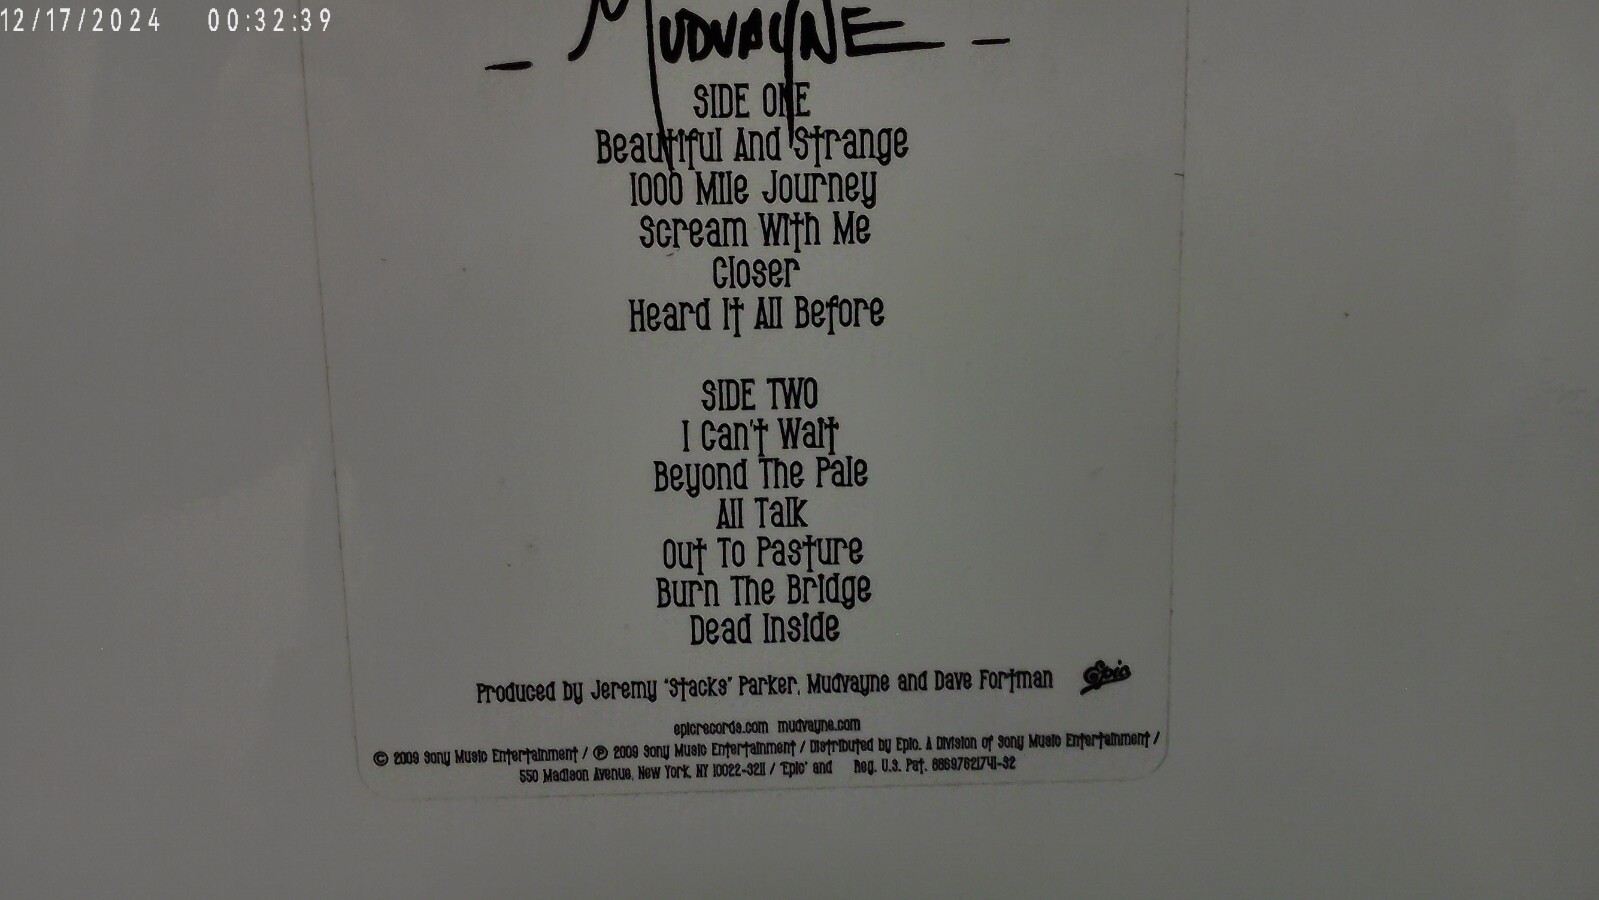 12/17/2024 00:32:39
- MUDVAYNE -
SIDE ONE
Beautiful And Strange
1000 Mile Journey
Scream With Me
Closer
Heard It All Before
SIDE TWO
I Can't Wait
Beyond The Pale
All Talk
Out To Pasture
Burn The Bridge
Dead Inside
Produced by Jeremy "Stacks" Parker, Mudvayne and Dave Fortman Epic
epicrecords.com mudvayne.com
© 2009 Sony Music Entertainment / ℗ 2009 Sony Music Entertainment / Distributed by Epic. A Division of Sony Music Entertainment /
550 Madison Avenue, New York, NY 10022-3211 / "Epic" and Reg. U.S. Pat. 88697621741-S2